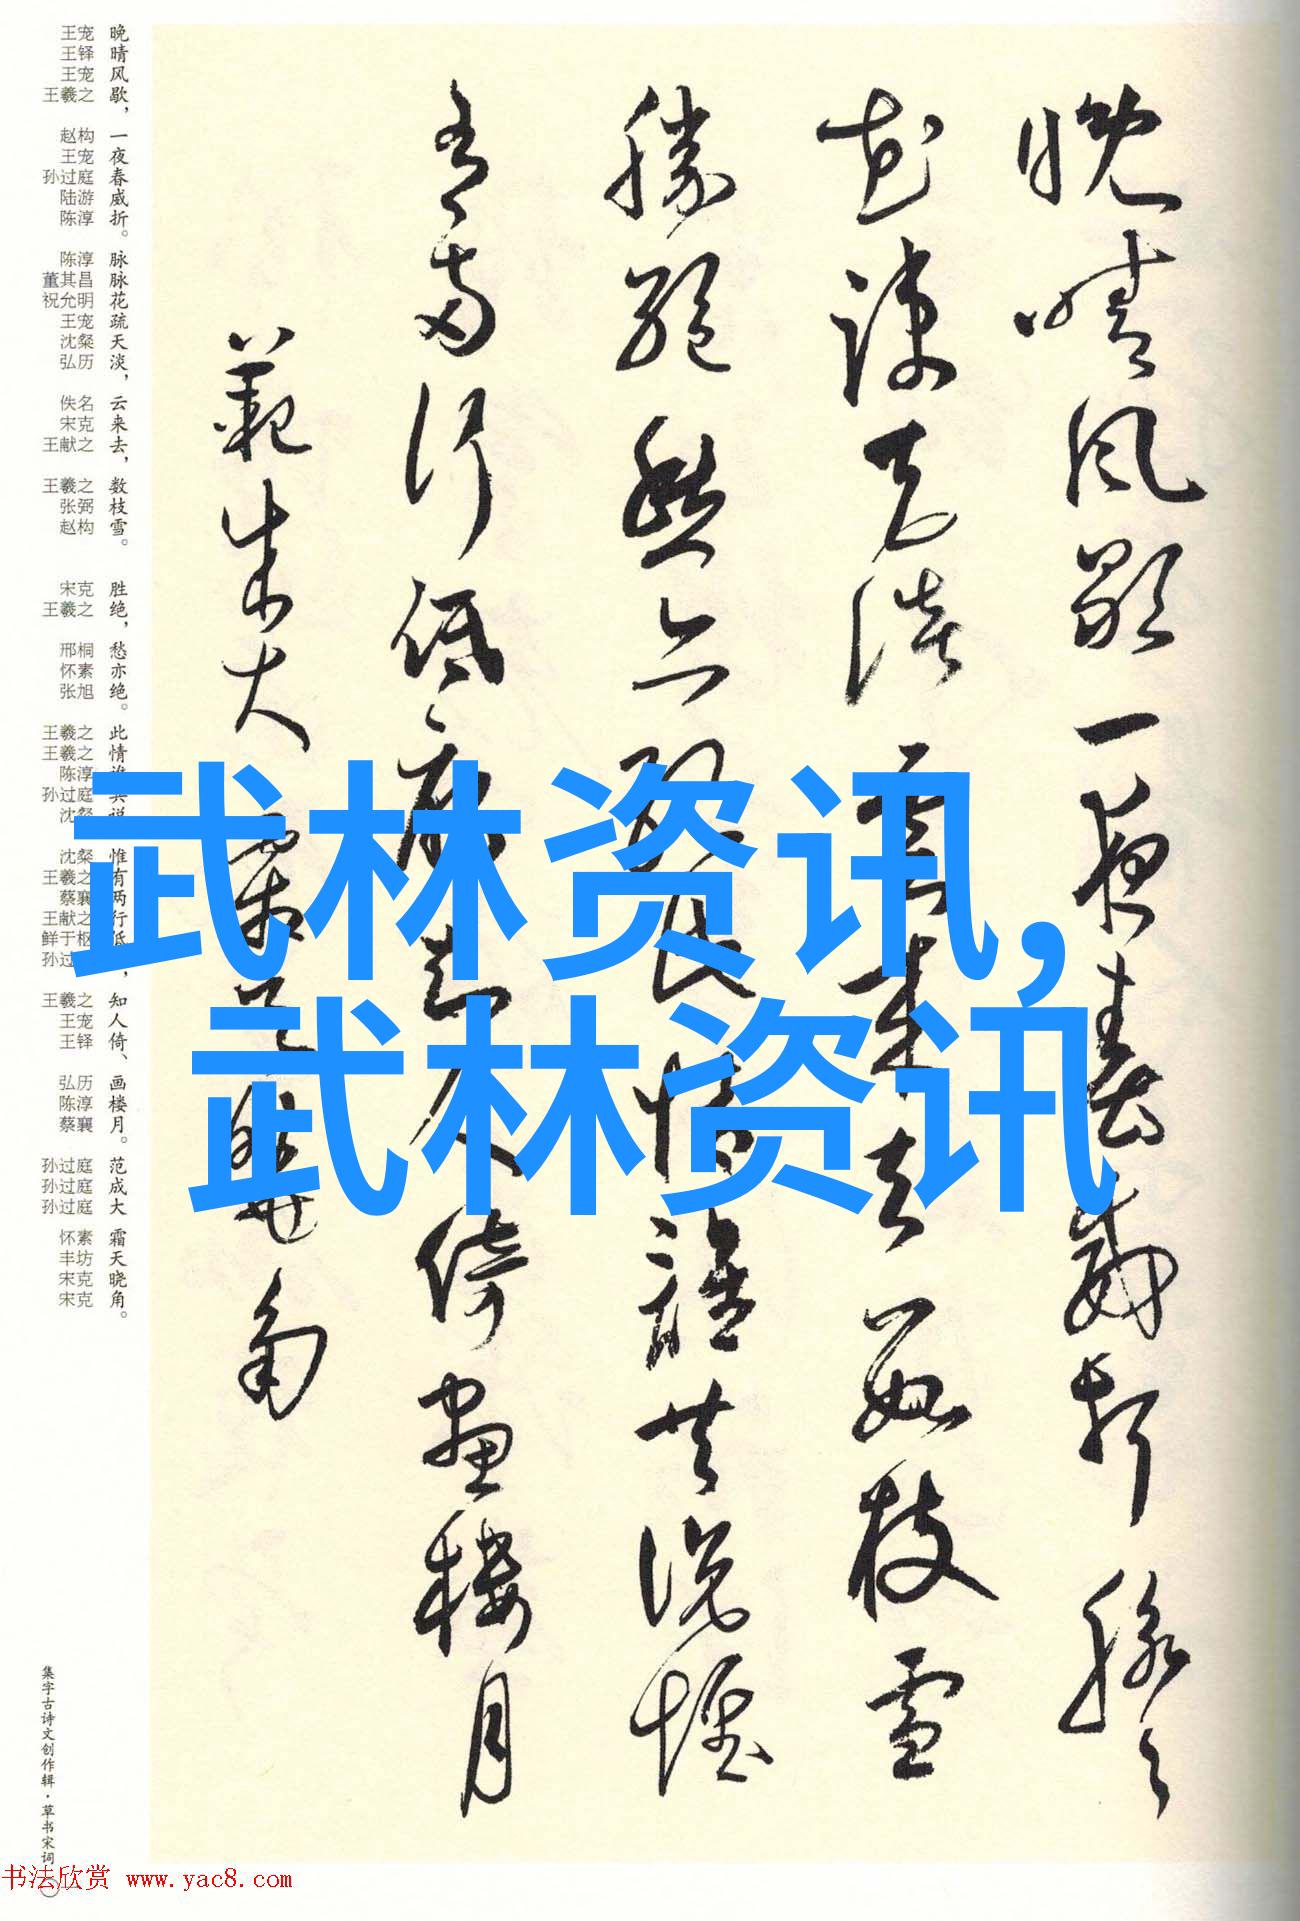 武林资讯,
武林资讯
晚晴風歇一夜春威折脉々
花疎天淡雲来去數枝雪
勝絕愁亦絕此情誰共說惟
有兩行低雁知人倚畫樓月
范成大霜天曉角
晚晴风歇，一夜春威折。脉脉花疏天淡，云来去，数枝雪。胜绝，愁亦绝。此情谁共说惟有两行低，知人倚、画楼月。范成大霜天晓角。
王宠 王铎 王宠 王羲之 赵构 王宠 孙过庭 陆游 陈淳 陈淳 董其昌 祝允明 王宠 沈粲 弘历 佚名 宋克 王献之 王羲之 张弼 赵构 宋克 王羲之 邢桐 怀素 张旭 王羲之 王羲之 陈淳 孙过庭 沈粲 沈粲 王羲之 蔡襄 王献之 鲜于枢 孙过 王羲之 王宠 王铎 弘历 陈淳 蔡襄 孙过庭 孙过庭 孙过庭 怀素 丰坊 宋克 宋克
集字古诗文创作辑·草书宋词
书法欣赏 www.yac8.com